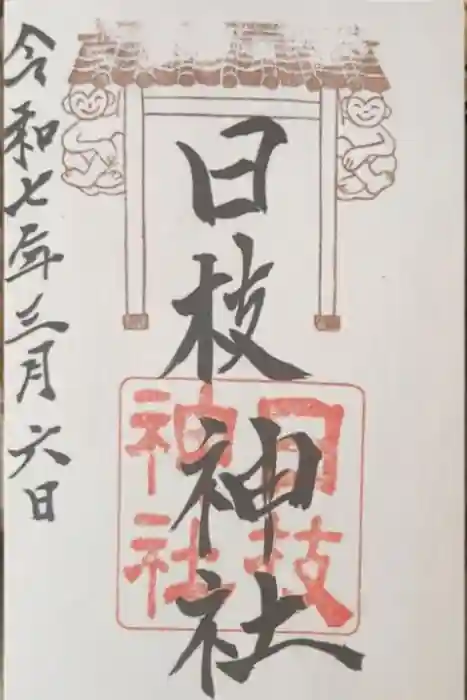 日枝神社
日枝
神社
令和七年三月六日